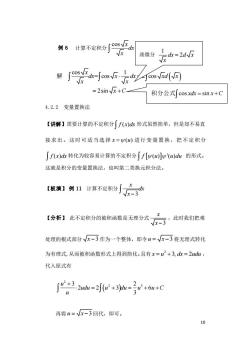 例 6 计算不定积分∫ cos√x / √x dx
凑微分 1/√x dx = 2d√x
解 ∫ cos√x / √x dx = ∫ cos√x · 1/√x dx = 2∫ cos√x d(√x)
= 2sin√x + C
积分公式∫ cos xdx = sin x + C
4.2.2 变量置换法
【讲解】需要计算的不定积分∫ f(x)dx 形式虽然简单，但是却不易直
接求出。这时可适当选择 x = ψ(u) 进行变量置换，把不定积分
∫ f(x)dx 转化为较容易计算的不定积分∫ f[ψ(u)]ψ'(u)du 的形式，
这就是积分的变量置换法，也叫第二类换元积分法。
【板演】例 11 计算不定积分∫ x / √(x−3) dx
【分析】此不定积分的被积函数是无理分式 x / √(x−3)，此时我们把难
处理的根式部分√(x−3) 作为一个整体，即令u = √(x−3) 将无理式转化
为有理式, 从而被积函数形式上得到简化,且有 x = u² + 3, dx = 2udu，
代入原式有
∫ (u² + 3)/u · 2udu = 2∫(u² + 3)du = 2/3 u³ + 6u + C
再将u = √(x−3) 回代，即可。
10